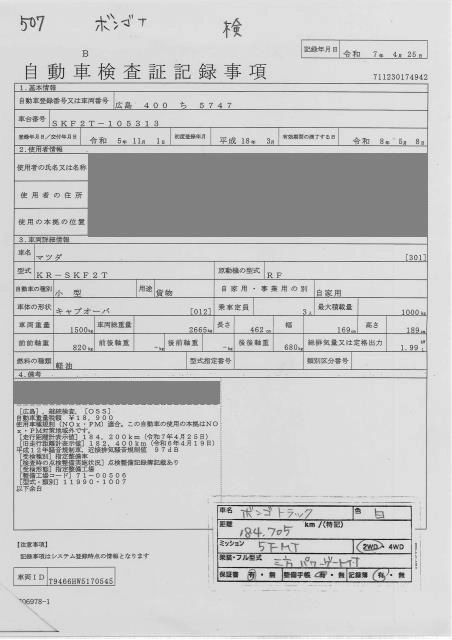 507 ボンゴT 検
記録年月日 令和 7年 4月 25日
B
自動車検査証記録事項
711230174942
1.基本情報
自動車登録番号又は車両番号 広島 400 ち 5747
車台番号 SKF2T-105313
登録年月日/交付年月日 令和 5年 11月 1日 初度登録年月 平成 18年 3月 有効期間の満了する日 令和 8年 5月 8日
2.使用者情報
使用者の氏名又は名称
使用者の住所
使用の本拠の位置
3.車両詳細情報
車名 マツダ [301]
型式 KR-SKF2T 原動機の型式 RF
自動車の種別 小型 用途 貨物 自家用・事業用の別 自家用
車体の形状 キャブオーバ [012] 乗車定員 3人 最大積載量 1000kg
車両重量 1500kg 車両総重量 2665kg 長さ 462cm 幅 169cm 高さ 189cm
前前軸重 820kg 前後軸重 -kg 後前軸重 -kg 後後軸重 680kg 総排気量又は定格出力 1.99 kW L
燃料の種類 軽油 型式指定番号 類別区分番号
4.備考
[広島],継続検査,[OSS]
自動車重量税額 ¥18,900
使用車種規制(NOx・PM)適合,この自動車の使用の本拠はNO
x・PM対策地域外です。
[走行距離計表示値]184,200km(令和7年4月25日)
[旧走行距離計表示値]182,400km(令和6年4月19日)
平成12年騒音規制車、近接排気騒音規制値 97dB
[受検種別]指定整備車
[検査時の点検整備実施状況]点検整備記録簿記載あり
[受検形態]指定整備工場
[整備工場コード]71-00506
[型式・類別]11990・1007
以下余白
車名 ボンゴトラック 色 白
距離 184,705 km/(特記)
ミッション 5FMT 2WD・4WD
架装・フル型式 三方パワーゲートMT
保証書 有・無 整備手帳 有・無 記録簿 有・無
【注意事項】
記録事項はシステム登録時点の情報となります
車両ID T9466HW5170545